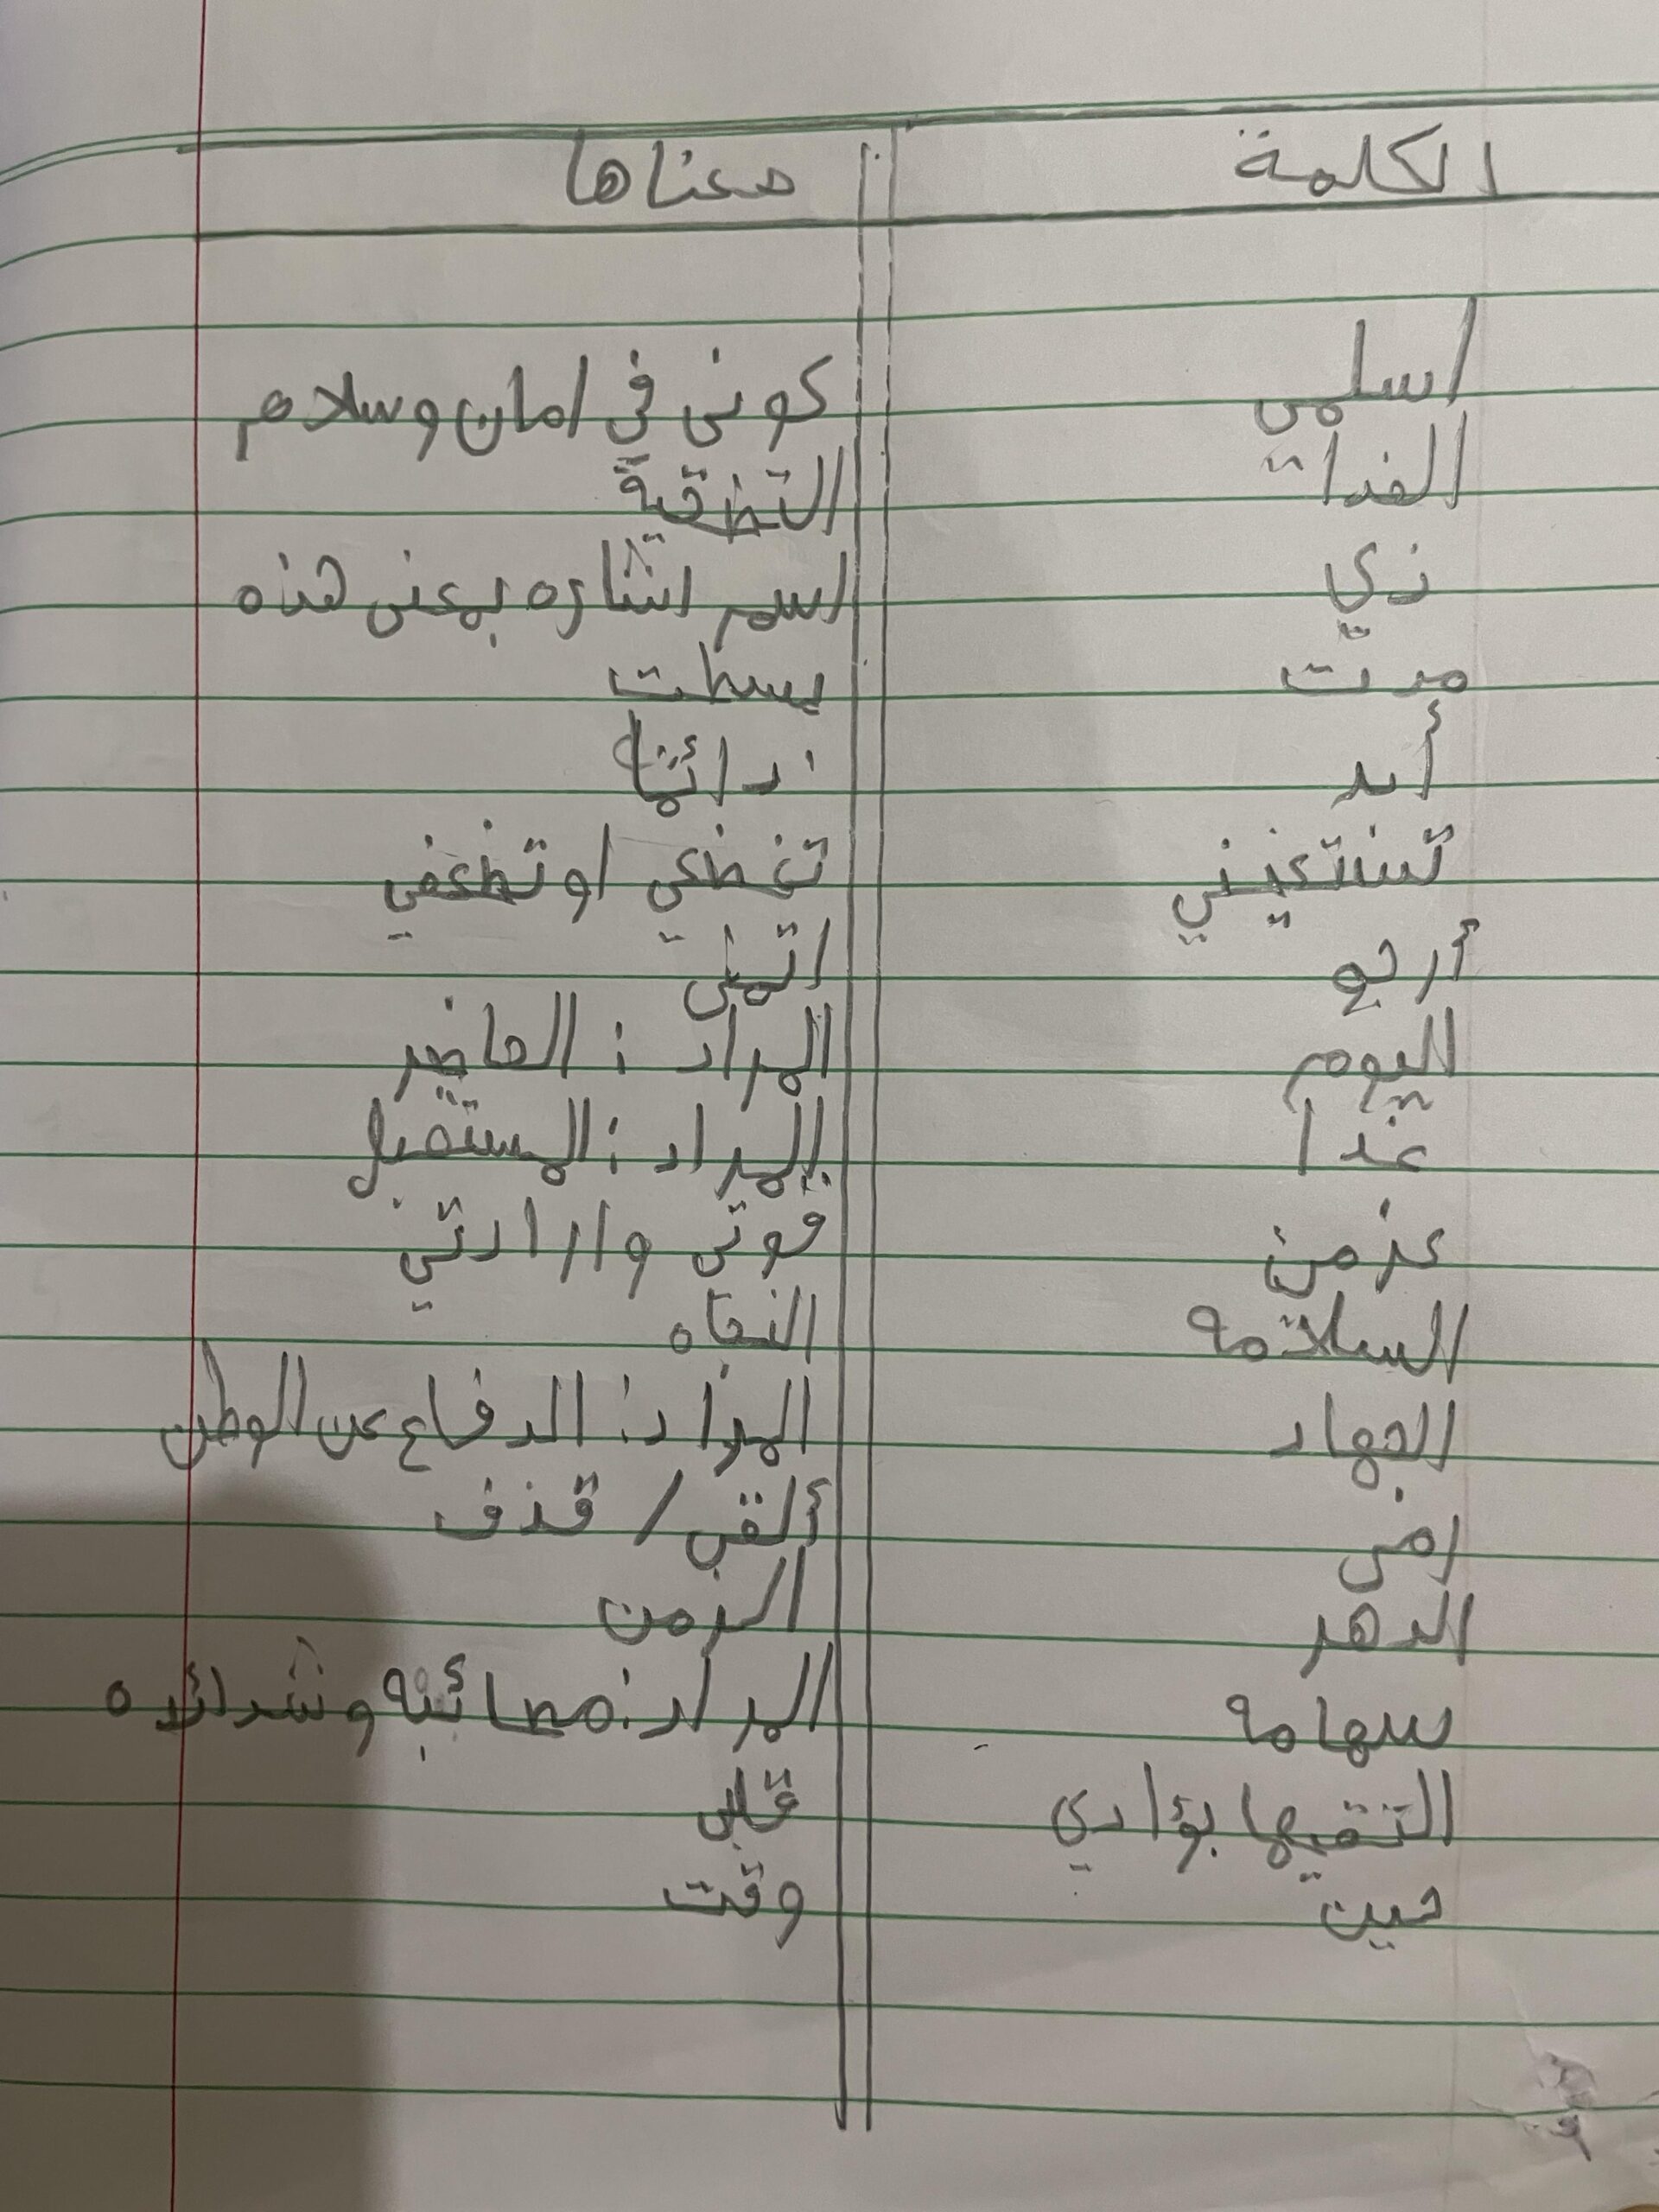 الكلمة معناها
اسلمى كونى في امان وسلام
الفدا التضقية
ذي اسم اشاره بمعنى هذه
مدت بسطت
أبد دائما
تستعيني تخضعي او تضعفي
أرجو اتمنى
اليوم المراد : الحاضر
غدا المراد : المستقبل
عزمن قوتى وارادتي
السلامه النجاه
الجهاد المراد : الدفاع عن الوطن
رمى ألقى / قذف
الدهر الزمن
سهامه المراد : مصائبه وشدائده
التقيها بؤادي قلبى
حين وقت